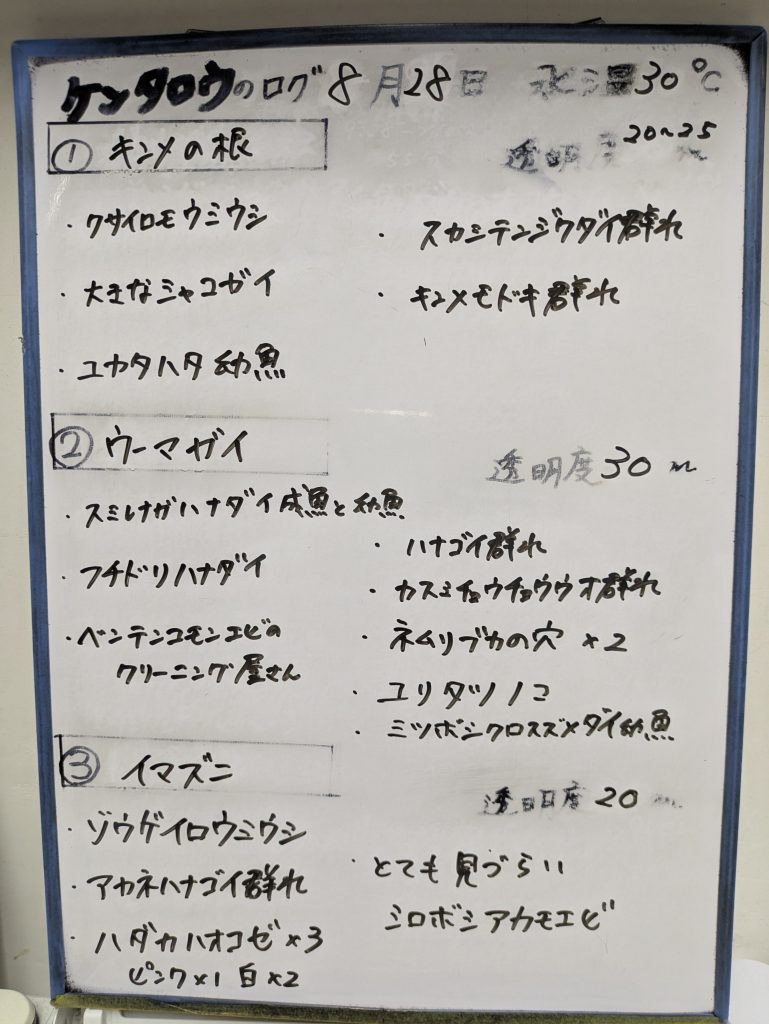 ケンタロウのログ 8月28日 水温30℃
① キンメの根
透明度 20~25 m
・クサイロモウミウシ
・大きなシャコガイ
・ユカタハタ幼魚
・スカシテンジクダイ群れ
・キンメモドキ群れ
② ウーマガイ
透明度 30 m
・スミレナガハナダイ成魚と幼魚
・フチドリハナダイ
・ベンテンコモンエビの
クリーニング屋さん
・ハナゴイ群れ
・カスミチョウチョウウオ群れ
・ネムリブカの穴 ×2
・ユリタツノコ
・ミツボシクロスズメダイ幼魚
③ イマズニ
透明度 20 m
・ゾウゲイロウミウシ
・アカネハナゴイ群れ
・ハダカハオコゼ×3
ピンク×1 白×2
・とても見づらい
シロボシアカモエビ